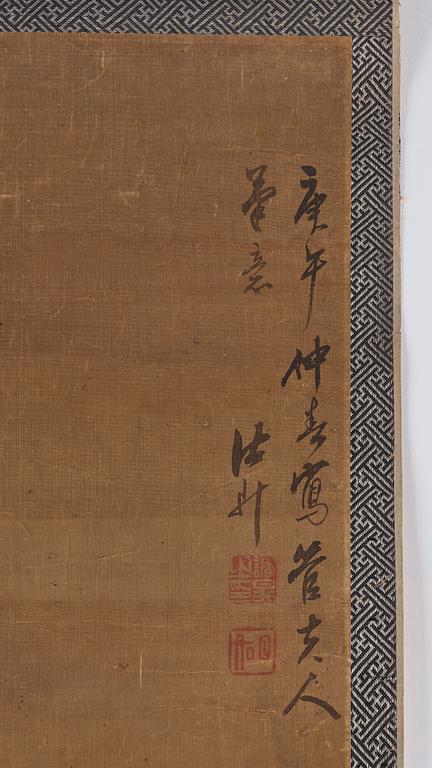 庚午仲春寫管夫人
筆意
法升